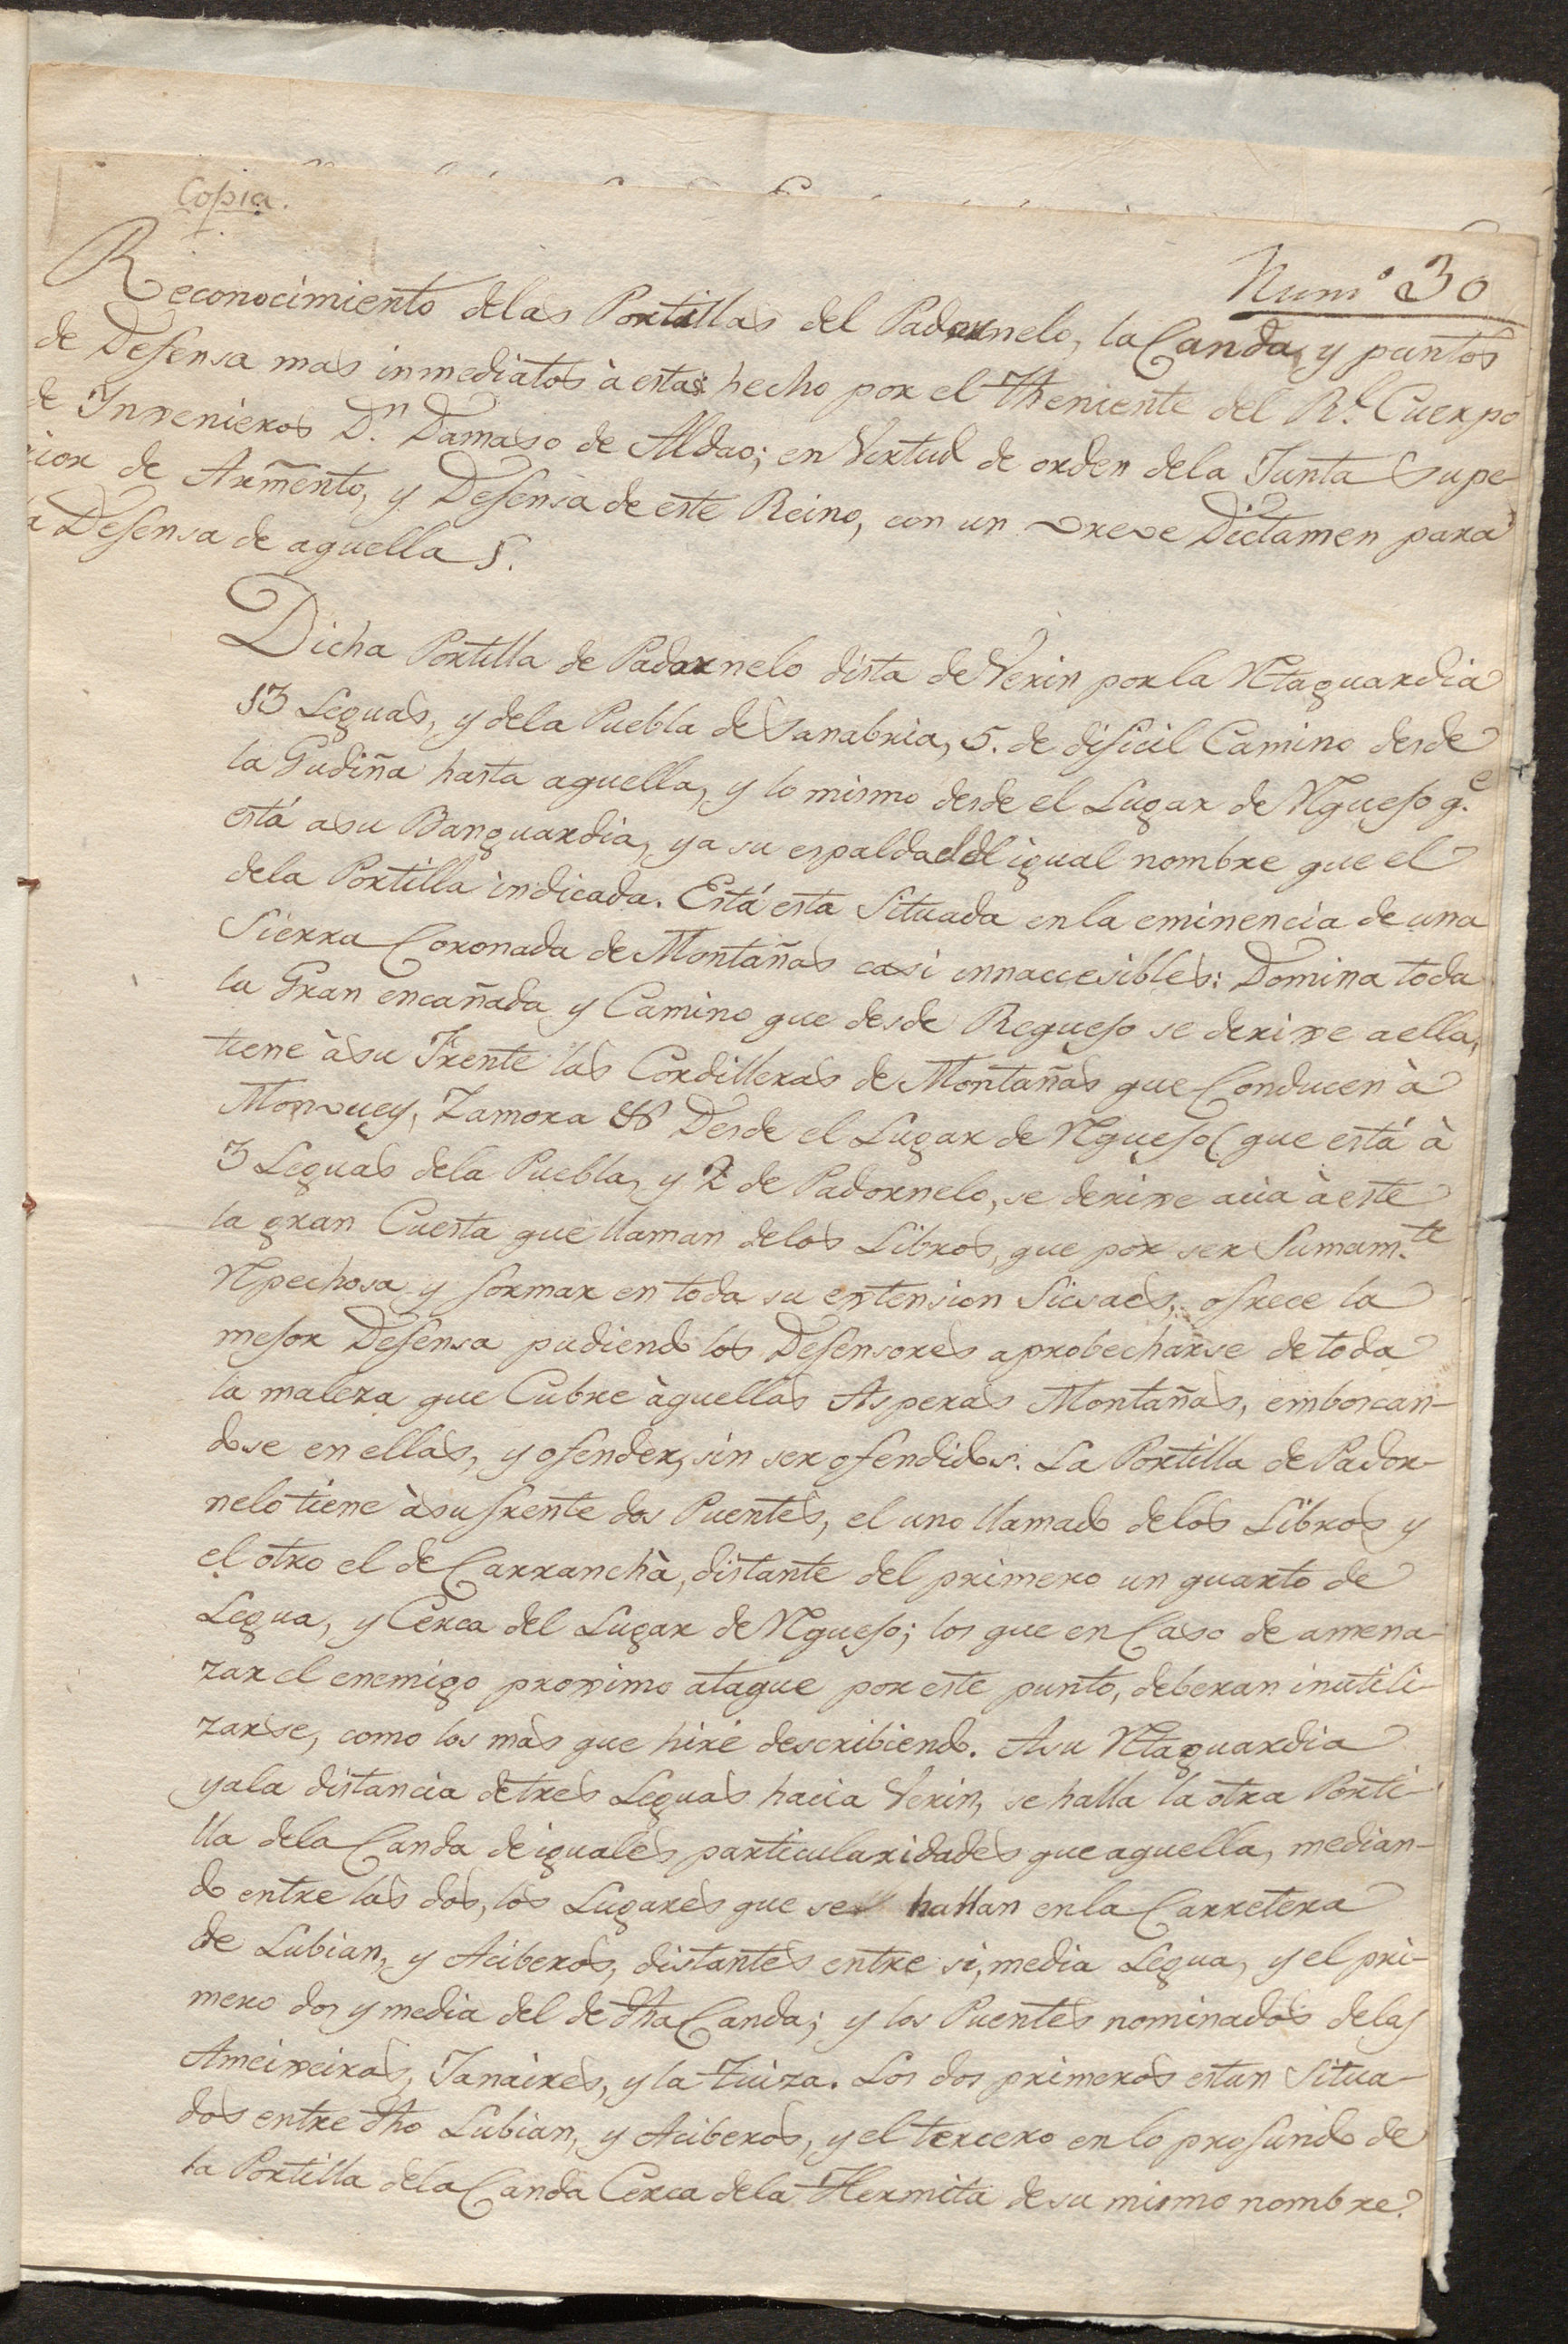 Copia.
Num.º 30
Reconocimiento delas Portillas del Padornelo, la Canda, y puntos
de Defensa mas inmediatos à estas hecho por el Theniente del Rl. Cuerpo
de Ingenieros Dn. Damaso de Aldao; en Vertud de orden dela Junta Supe-
rior de Armento, y Defensa de este Reino, con un breve Dictamen para
la Defensa de aquellas.
Dicha Portilla de Padornelo dista de Verin por la Rtaguardia
13 Leguas, y dela Puebla de Sanabria, 5. de dificil Camino desde
la Gudiña hasta aquella, y lo mismo desde el Lugar de Rquejo q.e
está asu Banguardia, y a su espalda el del igual nombre que el
dela Portilla indicada. Está esta Situada en la eminencia de una
Sierra Coronada de Montañas casi innaccesibles: Domina toda
la Gran encañada y Camino que desde Requejo se dirige aella,
tiene àsu Frente las Cordilleras de Montañas que Conducen à
Monbuey, Zamora &ª Desde el Lugar de Rquejo (que está à
3 Leguas dela Puebla, y 2 de Padornelo, se dirige acia à este
la gran Cuesta que llaman delos Libros, que por ser Sumam.te
Rpechosa y formar en toda su extension Sicsacs, ofrece la
mejor Defensa pudiendo los Defensores aprobecharse de toda
la maleza que Cubre àquellas Asperas Montañas, emboscan-
dose en ellas, y ofender, sin ser ofendidos. La Portilla de Pador-
nelo tiene àsu frente dos Puentes, el uno llamado delos Libros y
el otro el de Carranchà, distante del primero un quarto de
Legua, y Cerca del Lugar de Rquejo; los que en Caso de amena-
zar el enemigo proximo ataque por este punto, deberan inutili-
zarse, como los más que hiré describiendo. Asu Rtaguardia
yala distancia detres Leguas hacia Verin, se halla la otra Porti-
lla dela Canda de iguales particularidades que aquella, median-
do entre las dos, los Lugares que se hallan en la Carretera
de Lubian, y Aciberos, distantes entre si, media Legua, y el pri-
mero dos y media del de dha Canda; y los Puentes nominados delas
Ameixeiras, Janaires, y la Tuiza. Los dos primeros estan Situa-
dos entre dho Lubian, y Aciberos, y el tercero en lo profundo de
la Portilla dela Canda Cerca dela Hermita de su mismo nombre.